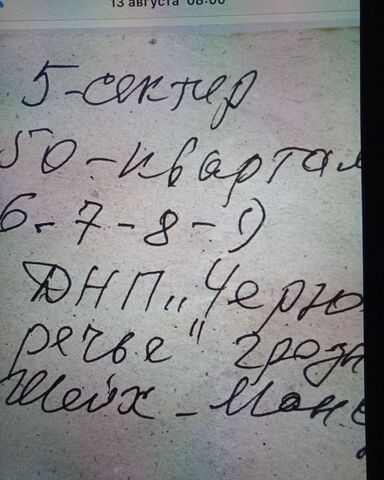 13 августа 08:00
5-сектер
50-квартал
6-7-8-9
ДНП „Черно
речье" грозн
Шейх-Ман